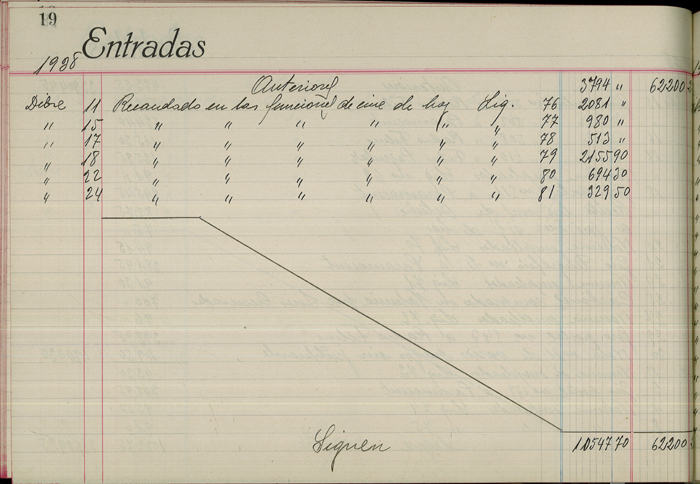 19
Entradas
1938
Anteriores 3794 " 62200
Dibre 11 Recaudado en las funciones de cine de hoy Liq. 76 2081 "
" 15 " " " " " " 77 980 "
" 17 " " " " " " 78 513 "
" 18 " " " " " " 79 2155 90
" 22 " " " " " " 80 694 30
" 24 " " " " " " 81 329 50
Siguen 10547 70 62200